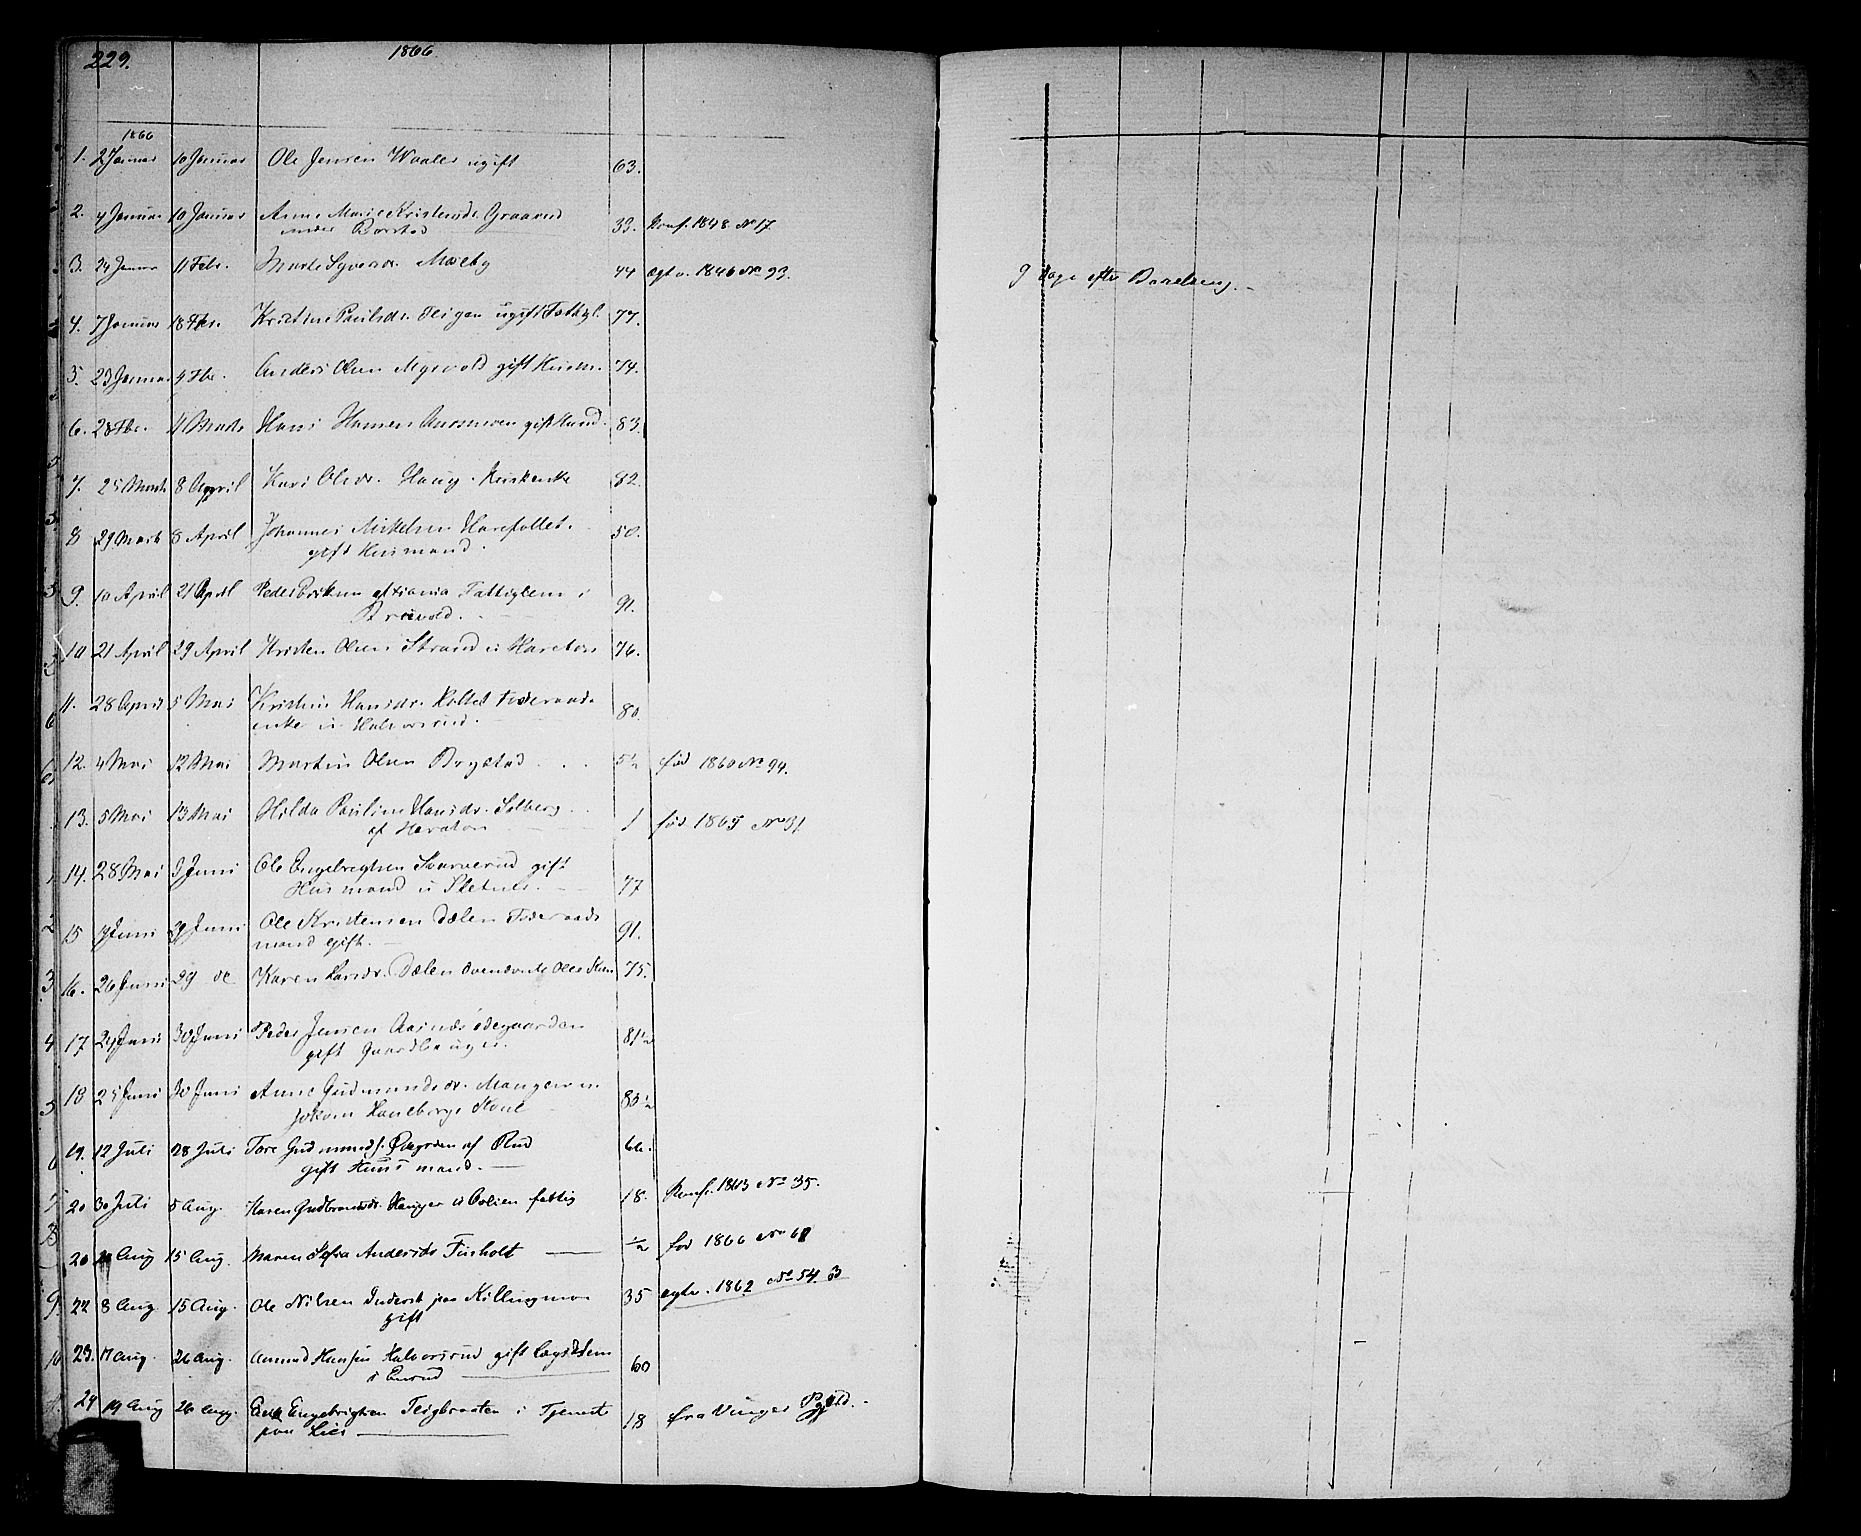 229.
1866
1866
1. 2 Januar 10 Januar Ole Jensen Waaler ugift 63.
2. 4 Januar 10 Januar Anne Marie Kristensdr. Graarud 33. Konf. 1848 No 17
under Borstad
3. 24 Januar 11 Febr. Marte Syversdr. Moseby 44 ægtv. 1846 No 23. 9 dage efter Barnseng.
4. 7 Januar 18 Fbr. Kristine Paulsdr. Teigen ugift Fattigl. 77.
5. 23 Januar 4 Fbr. Anders Olsen Mysvold gift Husm. 74.
6. 28 Fbr. 11 Marts Hans Hansen gift Husmd. 83.
7. 25 Marts 8 April Kari Olsdr. Haug. Huskenke 82.
8 29 Marts 8 April Johannes Mikelsen Harefallet.
gift Husmand. 50.
9. 10 April 21 April Peder Eriksen Fattiglem i
91.
10 21 April 29 April Kristen Olsen Strand u Hareton 76.
11. 28 April 5 Mai Kristine Hansdr. Foderaads
enke u. Halvorsrud. 80.
12. 4 Mai 12 Mai Martin Olsen Brystad 5½ født 1860 No 94.
13. 5 Mai 13 Mai Hilda Pauline Hansdr. Solberg
af Hareton 1 fød. 1865 No 31
14. 28 Mai 3 Juni Ole Engebrigtsen Svarverud gift
Husmand u Sletner. 77
15 Juni Juni Ole Kristensen Dælen Foderaads
mand gift. 91.
16. 26 Juni 29 do Karen Larsdr. Dælen ovennevnte Oles Kone 75.
17 Juni 30 Juni Peder Jensen Aasnæs ødegaarden
gift Gaardbruger. 81½
18 25 Juni 30 Juni Anne Gudmundsdr. Mangen
Johan Haneborgs Kone 83½
19. 12 Juli 28 Juli Tore Gudmunds. af Rud
gift Huusmand. 66.
20 30 Juli 5 Aug. Karen Gudbrandsdr. Hanger fattig 18. Konf. 1863 No 35.
20 Aug 15 Aug. Maren Sofia Andersdr Finholt ½ fød 1866 No 68
22 8 Aug 15 Aug. Ole Nilsen Inderst paa Killingmo 35 ægtv. 1862 No 54. B
gift
23. 17 Aug. 26 Aug. Amund Hansen Halvorsrud gift Lægdslem
i Enerud 60
24 19 Aug 26 Aug. Engebrigtsen Teigbraaten i Tjeneste
paa Lier 18 fra Vinger Pgjeld.